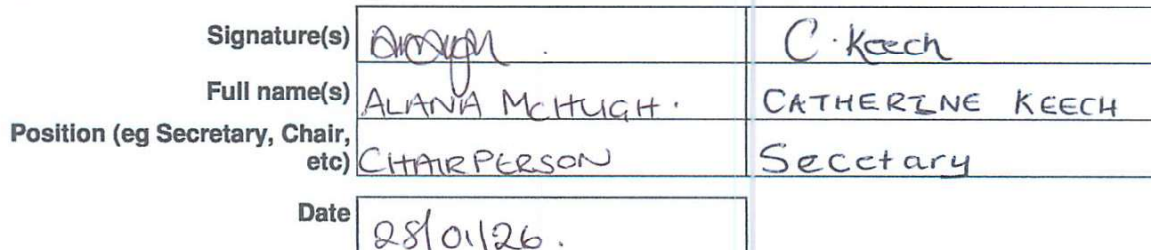 Signature(s) C. Keech
Full name(s) ALANA McHUGH. CATHERINE KEECH
Position (eg Secretary, Chair,
etc) CHAIRPERSON Secetary
Date 28/01/26.